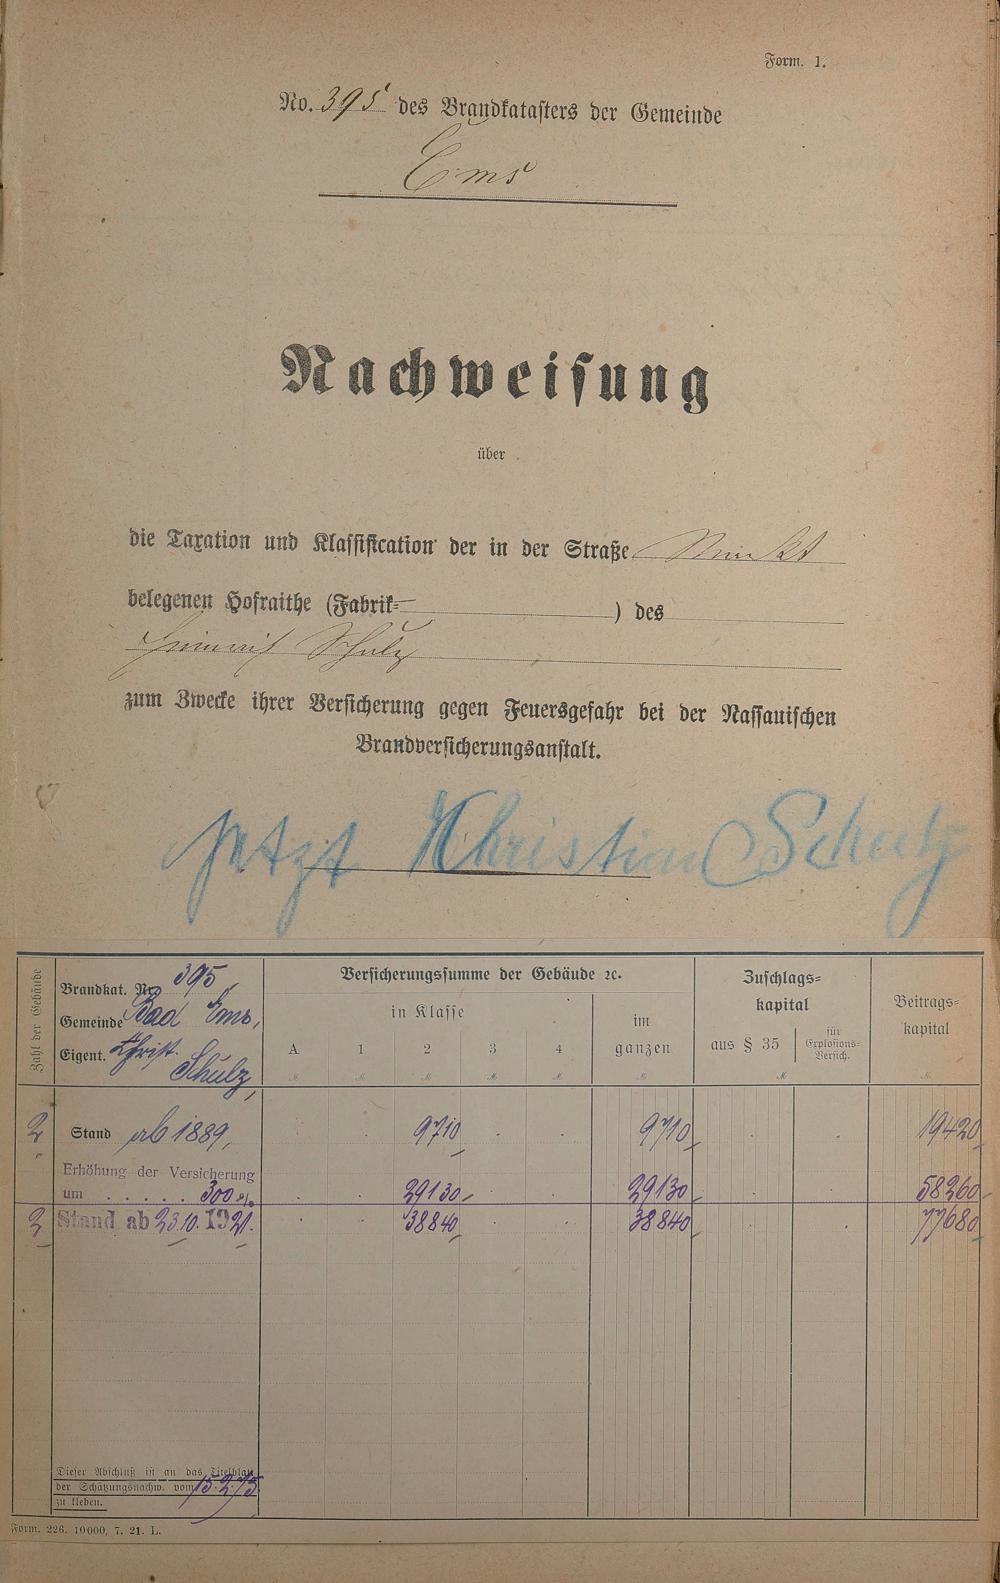 Form. 1.
No. 395 des Brandkatasters der Gemeinde
Ems
Nachweisung
über
die Taxation und Klassification der in der Straße Markt
belegenen Hofraithe (Fabrik= ) des
Heinrich Schulz
zum Zwecke ihrer Versicherung gegen Feuersgefahr bei der Nassauischen
Brandversicherungsanstalt.
jetzt Christian Schulz
Zahl der Gebäude
Brandkat. Nr. 395,
Gemeinde Bad Ems,
Eigent. Christ.
Schulz,
Versicherungssumme der Gebäude ꝛc.
in Klasse
A 1 2 3 4
im
ganzen
Zuschlags=
kapital
aus § 35
für
Explosions=
Versich.
Beitrags=
kapital
2 Stand ab 1889, 9710 9710 19420
Erhöhung der Versicherung
um . . . . . 300 % 29130 29130 58260
2 Stand ab 23.10. 1921. 38840 38840 77680
Dieser Abschluß ist an das Titelblatt
der Schätzungsnachw. vom 15.2.75
zu kleben.
Form. 226. 10000, 7. 21. L.